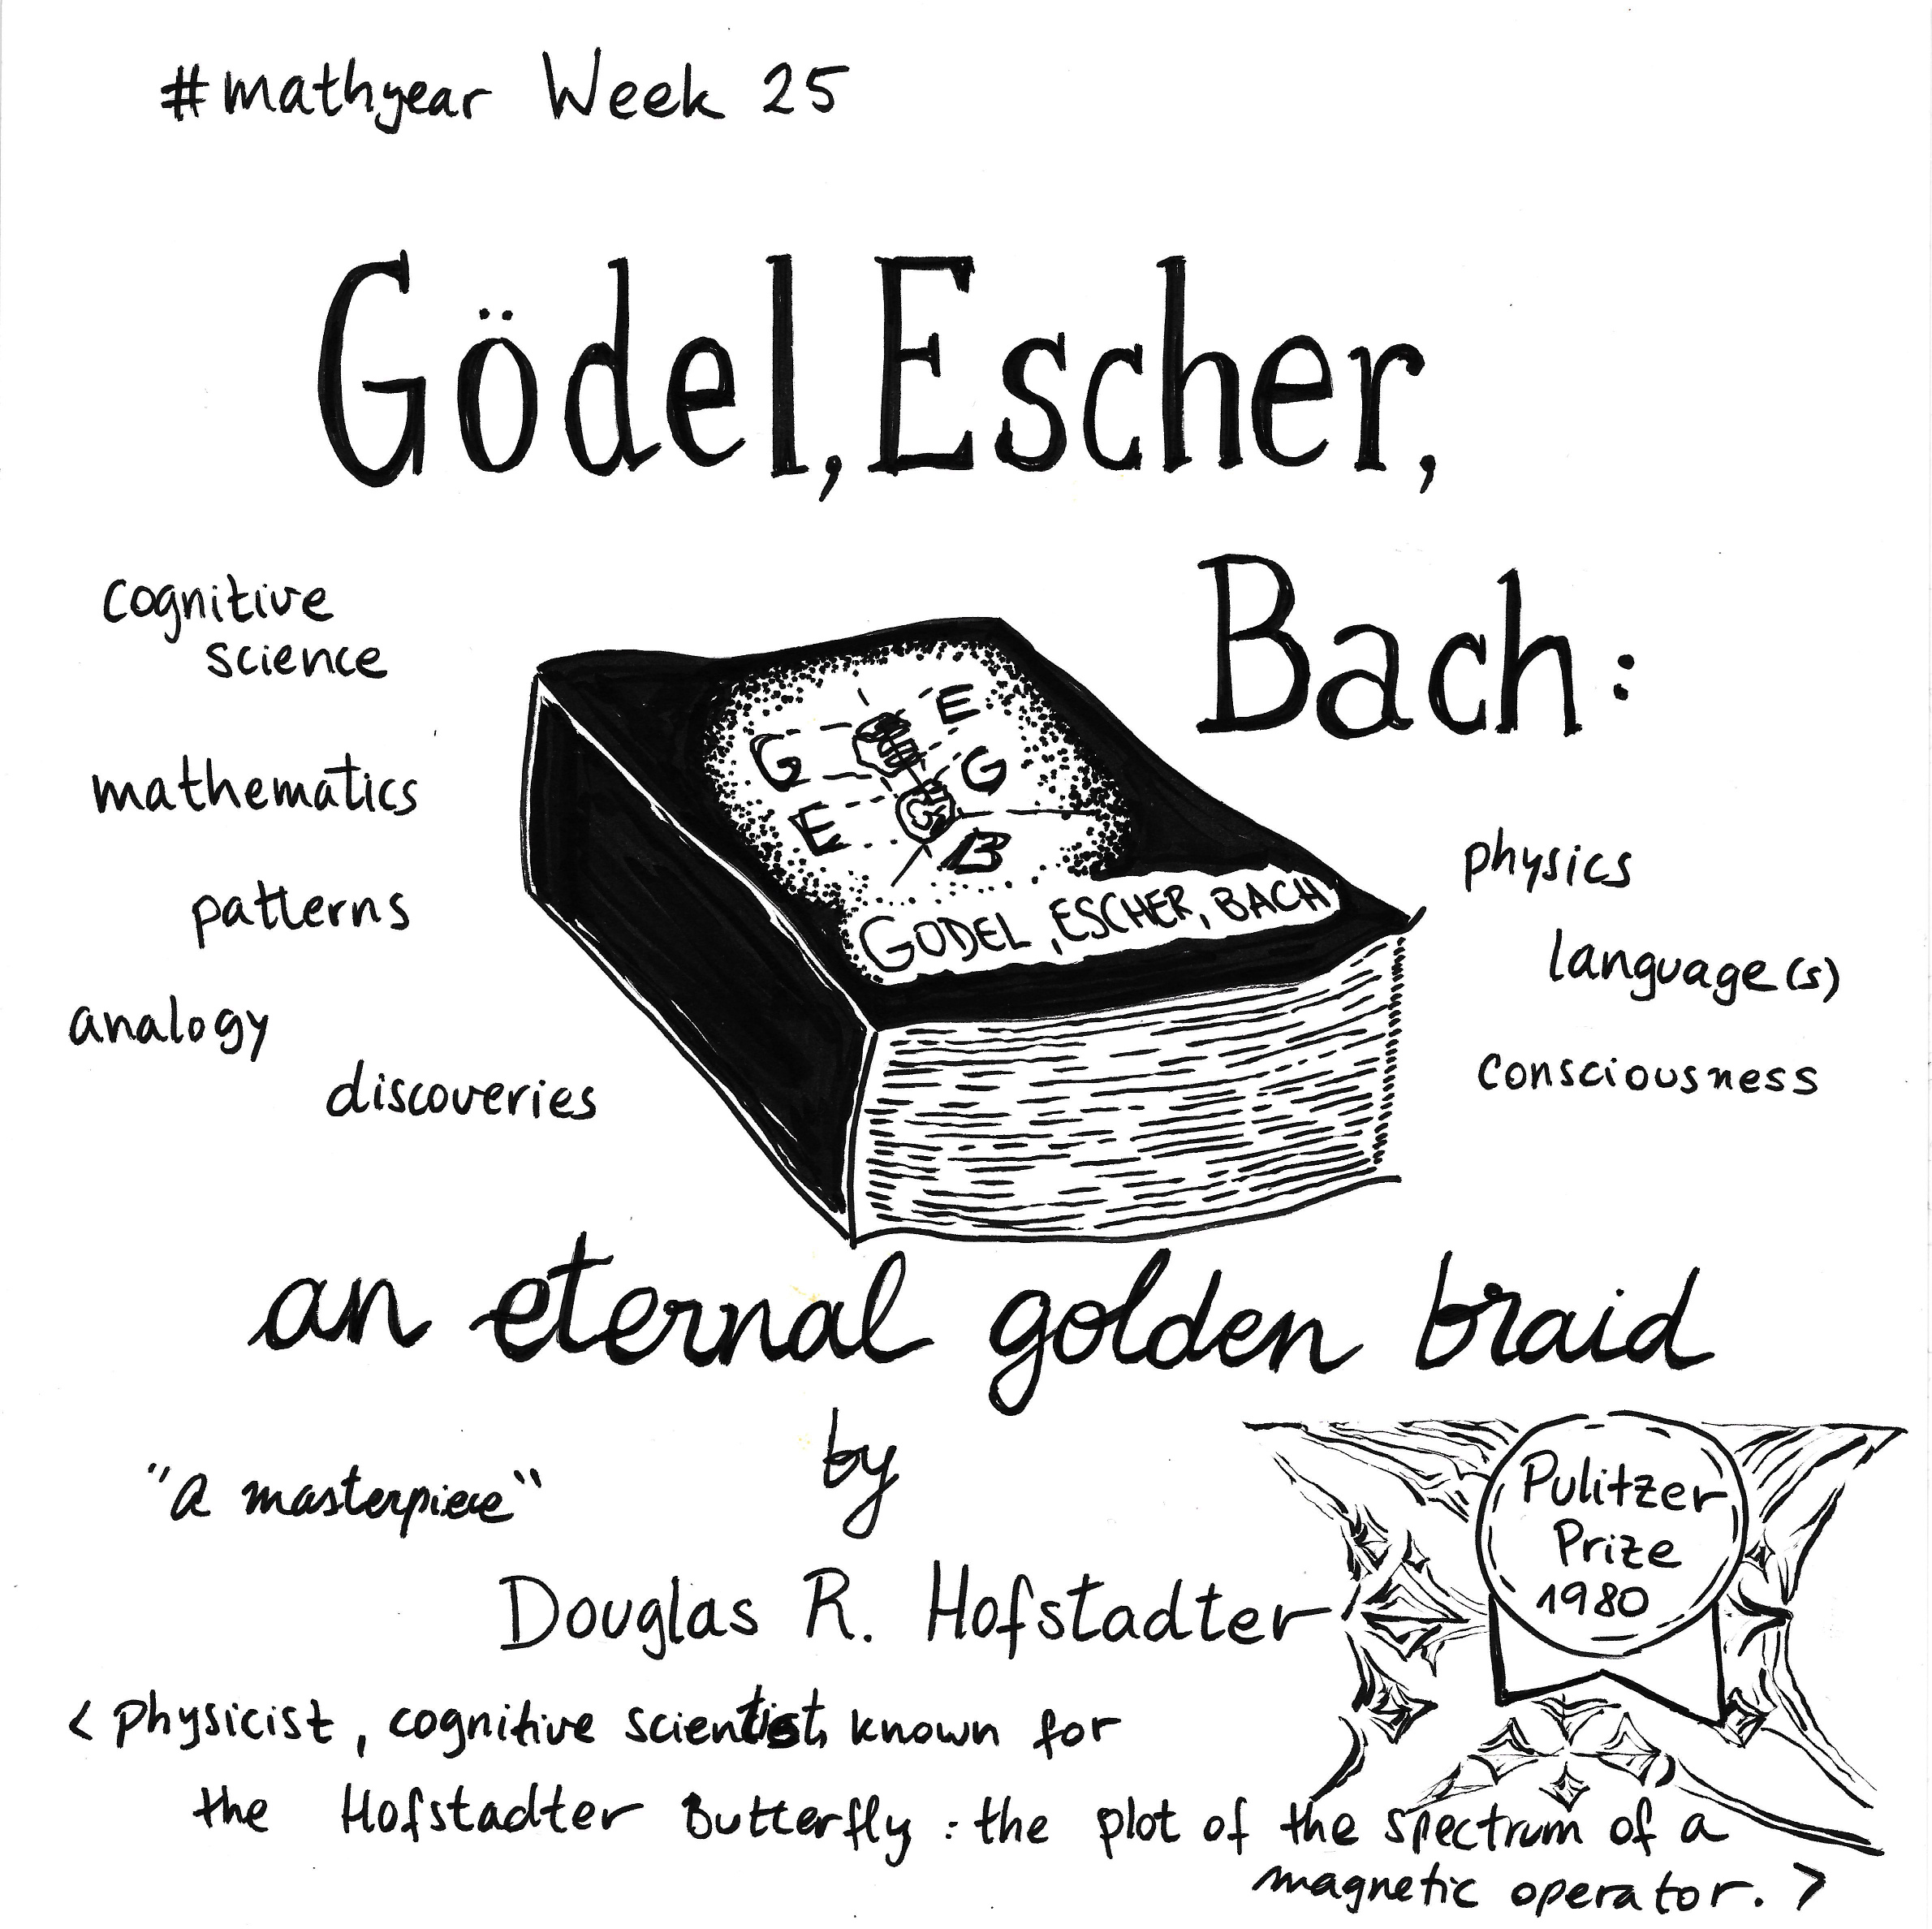 #mathyear Week 25
Gödel, Escher,
Bach:
cognitive
science
mathematics
patterns
analogy
discoveries
G E
G
E
B
GODEL, ESCHER, BACH
physics
language(s)
consciousness
an eternal golden braid
by
"a masterpiece"
Pulitzer
Prize
1980
Douglas R. Hofstadter
< physicist, cognitive scientist, known for
the Hofstadter Butterfly: the plot of the spectrum of a
magnetic operator. >